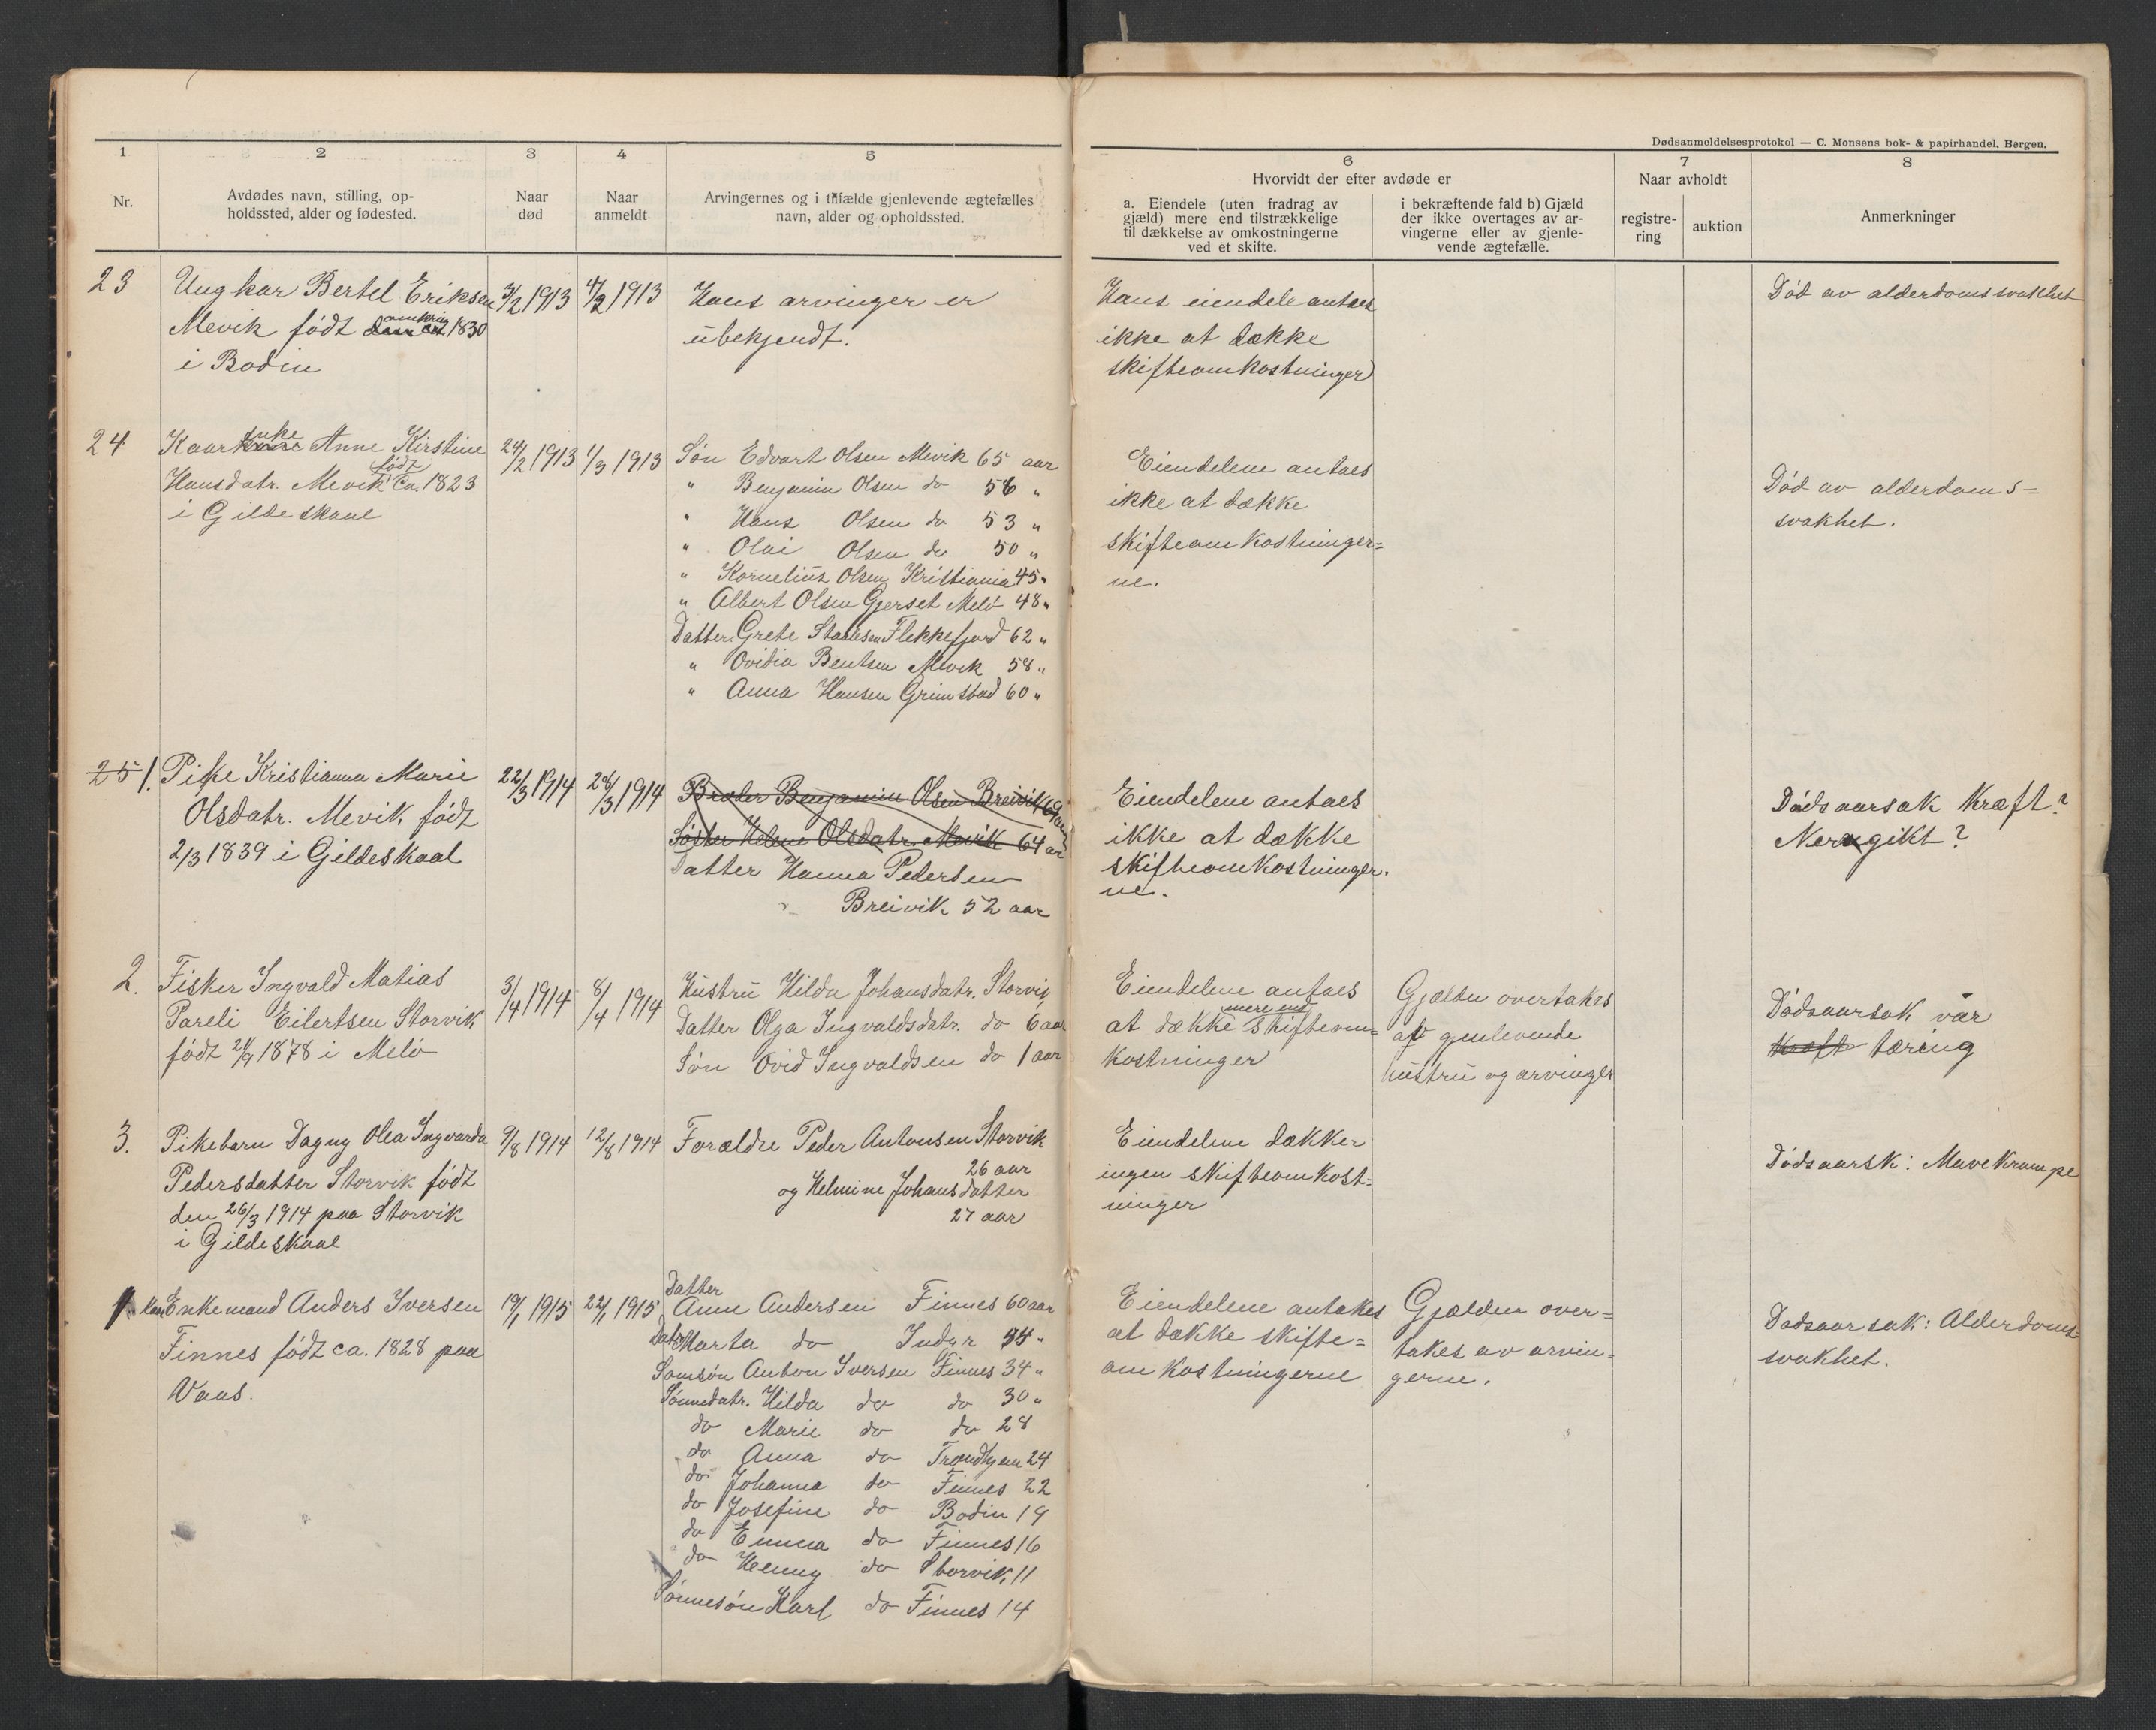 Dødsanmeldelsesprotokol — C. Monsens bok- & papirhandel, Bergen.
1 2 3 4 5 6 7 8
Nr.
Avdødes navn, stilling, op-
holdssted, alder og fødested.
Naar
død
Naar
anmeldt
Arvingernes og i tilfælde gjenlevende ægtefælles
navn, alder og opholdssted.
Hvorvidt der efter avdøde er
a. Eiendele (uten fradrag av
gjæld) mere end tilstrækkelige
til dækkelse av omkostningerne
ved et skifte.
i bekræftende fald b) Gjæld
der ikke overtages av ar-
vingerne eller av gjenle-
vende ægtefælle.
Naar avholdt
registre-
ring
auktion
Anmerkninger
23
Ungkar Bertel Eriksen
Mevik født omkring 1830
i Bodin
/2 1913
4/2 1913
Hans arvinger er
ubekjendt.
Hans eiendele antaes
ikke at dække
skifteomkostninger
Død av alderdomssvakhet
24
Kaarenke Anne Kirstine
Hansdatr. Mevik født ca. 1823
i Gildeskaal
24/2 1913
1/3 1913
Søn Edvart Olsen Mevik 65 aar
" Benjamin Olsen do 56 "
" Hans Olsen do 53 "
" Olai Olsen do 50 "
" Kornelius Olsen Kristiania 45 "
" Albert Olsen Gjerset Melö 48 "
Datter Grete Flekkefjord 62 "
" Ovidia Bentsen Mevik 58 "
" Anna Hansen Grimstad 60 "
Eiendelene antaes
ikke at dække
skifteomkostninger=
ne.
Død av alderdoms=
svakhet.
25 1.
Pike Kristianna Marie
Olsdatr. Mevik født
2/3 1839 i Gildeskaal
22/3 1914
28/3 1914
Broder Benjamin Olsen Breivik 69 aar
Søster Helene Olsdatr. Mevik 64 aar
Datter Hanna Pedersen
Breivik 52 aar
Eiendelene antaes
ikke at dække
skifteomkostninger.
ne.
Dødsaarsak kræft?
Nervegikt?
2.
Fisker Ingvald Matias
Pareli Eilertsen Storvik
født 21/9 1878 i Melö
3/4 1914
8/4 1914
Hustru Hilda Johansdatr. Storvik
Datter Olga Ingvaldsdatr. do 6 aar
Søn Ovid Ingvaldsen do 1 aar
Eiendelene antaes
at dække mere end skifteom=
kostninger
Gjælden overtakes
af genlevende
hustru og arvinger
Dødsaarsak var
kræft tæring
3.
Pikebarn Dagny Olea Ingvarda
Pedersdatter Storvik født
den 26/3 1914 paa Storvik
i Gildeskaal
9/8 1914
12/8 1914
Forældre Peder Antonsen Storvik
26 aar
og Helmine Johansdatter
27 aar
Eiendelene dækker
ingen skifteomkost=
ninger
Dødsaarsk: Mavekrampe
1.
Enkemand Anders Iversen
Finnes født ca. 1828 paa
Vaas.
19/1 1915
22/1 1915
Datter
Anne Andersen Finnes 60 aar
Datr Marta do Indyr 54 "
Sønnsøn Anton Iversen Finnes 34 "
Sønnedatr. Hilda do do 30 "
do Marie do do 28
do Anna do Trondhjem 24
do Johanna do Finnes 22
do Josefine do Bodin 19
do Emma do Finnes 16
do Henny do Storvik 11
Sønnesøn Karl do Finnes 14
Eiendelene antakes
at dække skifte=
omkostningerne
Gjælden over=
takes av arvin=
gerne.
Dødsaarsak: Alderdoms=
svakhet.